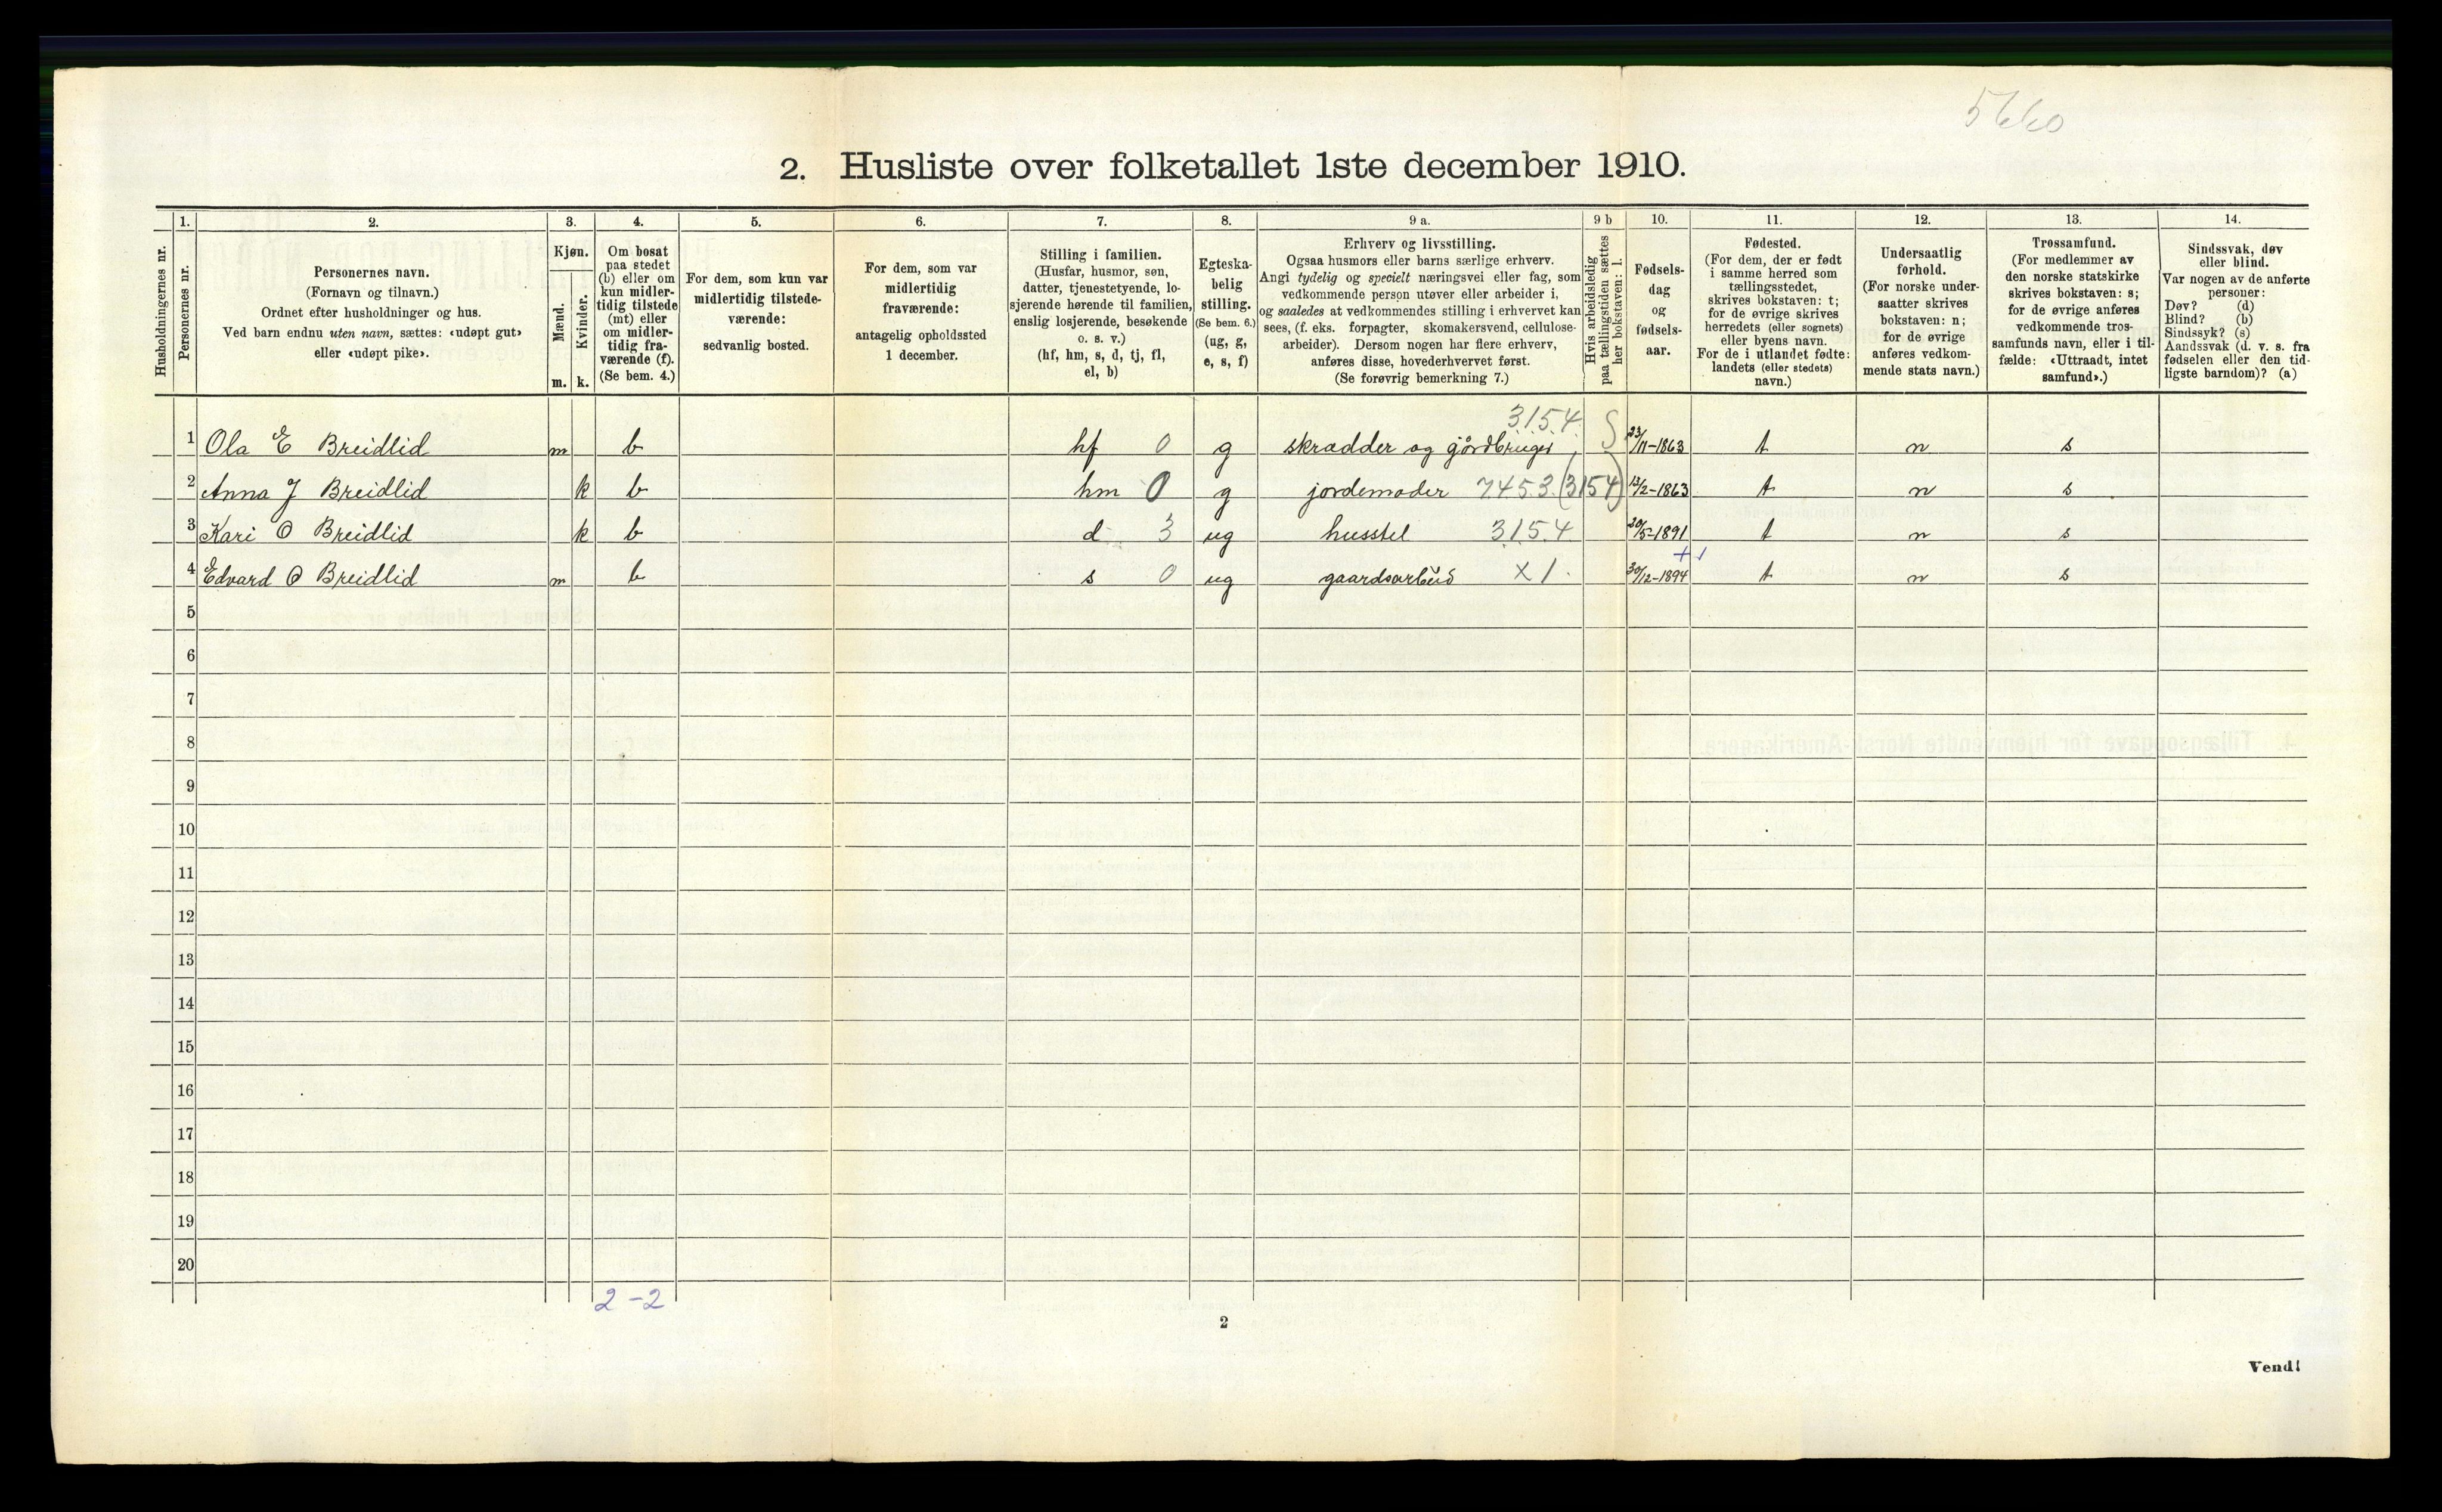 5660
2. Husliste over folketallet 1ste december 1910.
Husholdningernes nr.
1.
Personernes nr.
2.
Personernes navn.
(Fornavn og tilnavn.)
Ordnet efter husholdninger og hus.
Ved barn endnu uten navn, sættes: «udøpt gut»
eller «udøpt pike».
3.
Kjøn.
Mænd.
Kvinder.
m. k.
4.
Om bosat
paa stedet
(b) eller om
kun midler-
tidig tilstede
(mt) eller
om midler-
tidig fra-
værende (f).
(Se bem. 4.)
5.
For dem, som kun var
midlertidig tilstede-
værende:
sedvanlig bosted.
6.
For dem, som var
midlertidig
fraværende:
antagelig opholdssted
1 december.
7.
Stilling i familien.
(Husfar, husmor, søn,
datter, tjenestetyende, lo-
sjerende hørende til familien,
enslig losjerende, besøkende
o. s. v.)
(hf, hm, s, d, tj, fl,
el, b)
8.
Egteska-
belig
stilling.
(Se bem. 6.)
(ug, g,
e, s, f)
9 a.
Erhverv og livsstilling.
Ogsaa husmors eller barns særlige erhverv.
Angi tydelig og specielt næringsvei eller fag, som
vedkommende person utøver eller arbeider i,
og saaledes at vedkommendes stilling i erhvervet kan
sees, (f. eks. forpagter, skomakersvend, cellulose-
arbeider). Dersom nogen har flere erhverv,
anføres disse, hovederhvervet først.
(Se forøvrig bemerkning 7.)
9 b
Hvis arbeidsledig
paa tællingstiden sættes
her bokstaven: l.
10.
Fødsels-
dag
og
fødsels-
aar.
11.
Fødested.
(For dem, der er født
i samme herred som
tællingsstedet,
skrives bokstaven: t;
for de øvrige skrives
herredets (eller sognets)
eller byens navn.
For de i utlandet fødte:
landets (eller stedets)
navn.)
12.
Undersaatlig
forhold.
(For norske under-
saatter skrives
bokstaven: n;
for de øvrige
anføres vedkom-
mende stats navn.)
13.
Trossamfund.
(For medlemmer av
den norske statskirke
skrives bokstaven: s;
for de øvrige anføres
vedkommende tros-
samfunds navn, eller i til-
fælde: «Uttraadt, intet
samfund».)
14.
Sindssvak, døv
eller blind.
Var nogen av de anførte
personer:
Døv? (d)
Blind? (b)
Sindssyk? (s)
Aandssvak (d. v. s. fra
fødselen eller den tid-
ligste barndom)? (a)
3154
1 Ola E Breidlid m b hf 0 g skrædder og gårdbruger S 23/11-1863 t n s
2 Anna J Breidlid k b hm 0 g jordemoder 7453 (3154) 13/2-1863 t n s
3 Kari O Breidlid k b d 3 ug husstel 3154 20/5-1891 t n s
4 Edvard O Breidlid m b s 0 ug gaardsarbeid X1 30/12-1894 t n s
5
6
7
8
9
10
11
12
13
14
15
16
17
18
19
20
2-2
2
Vend!